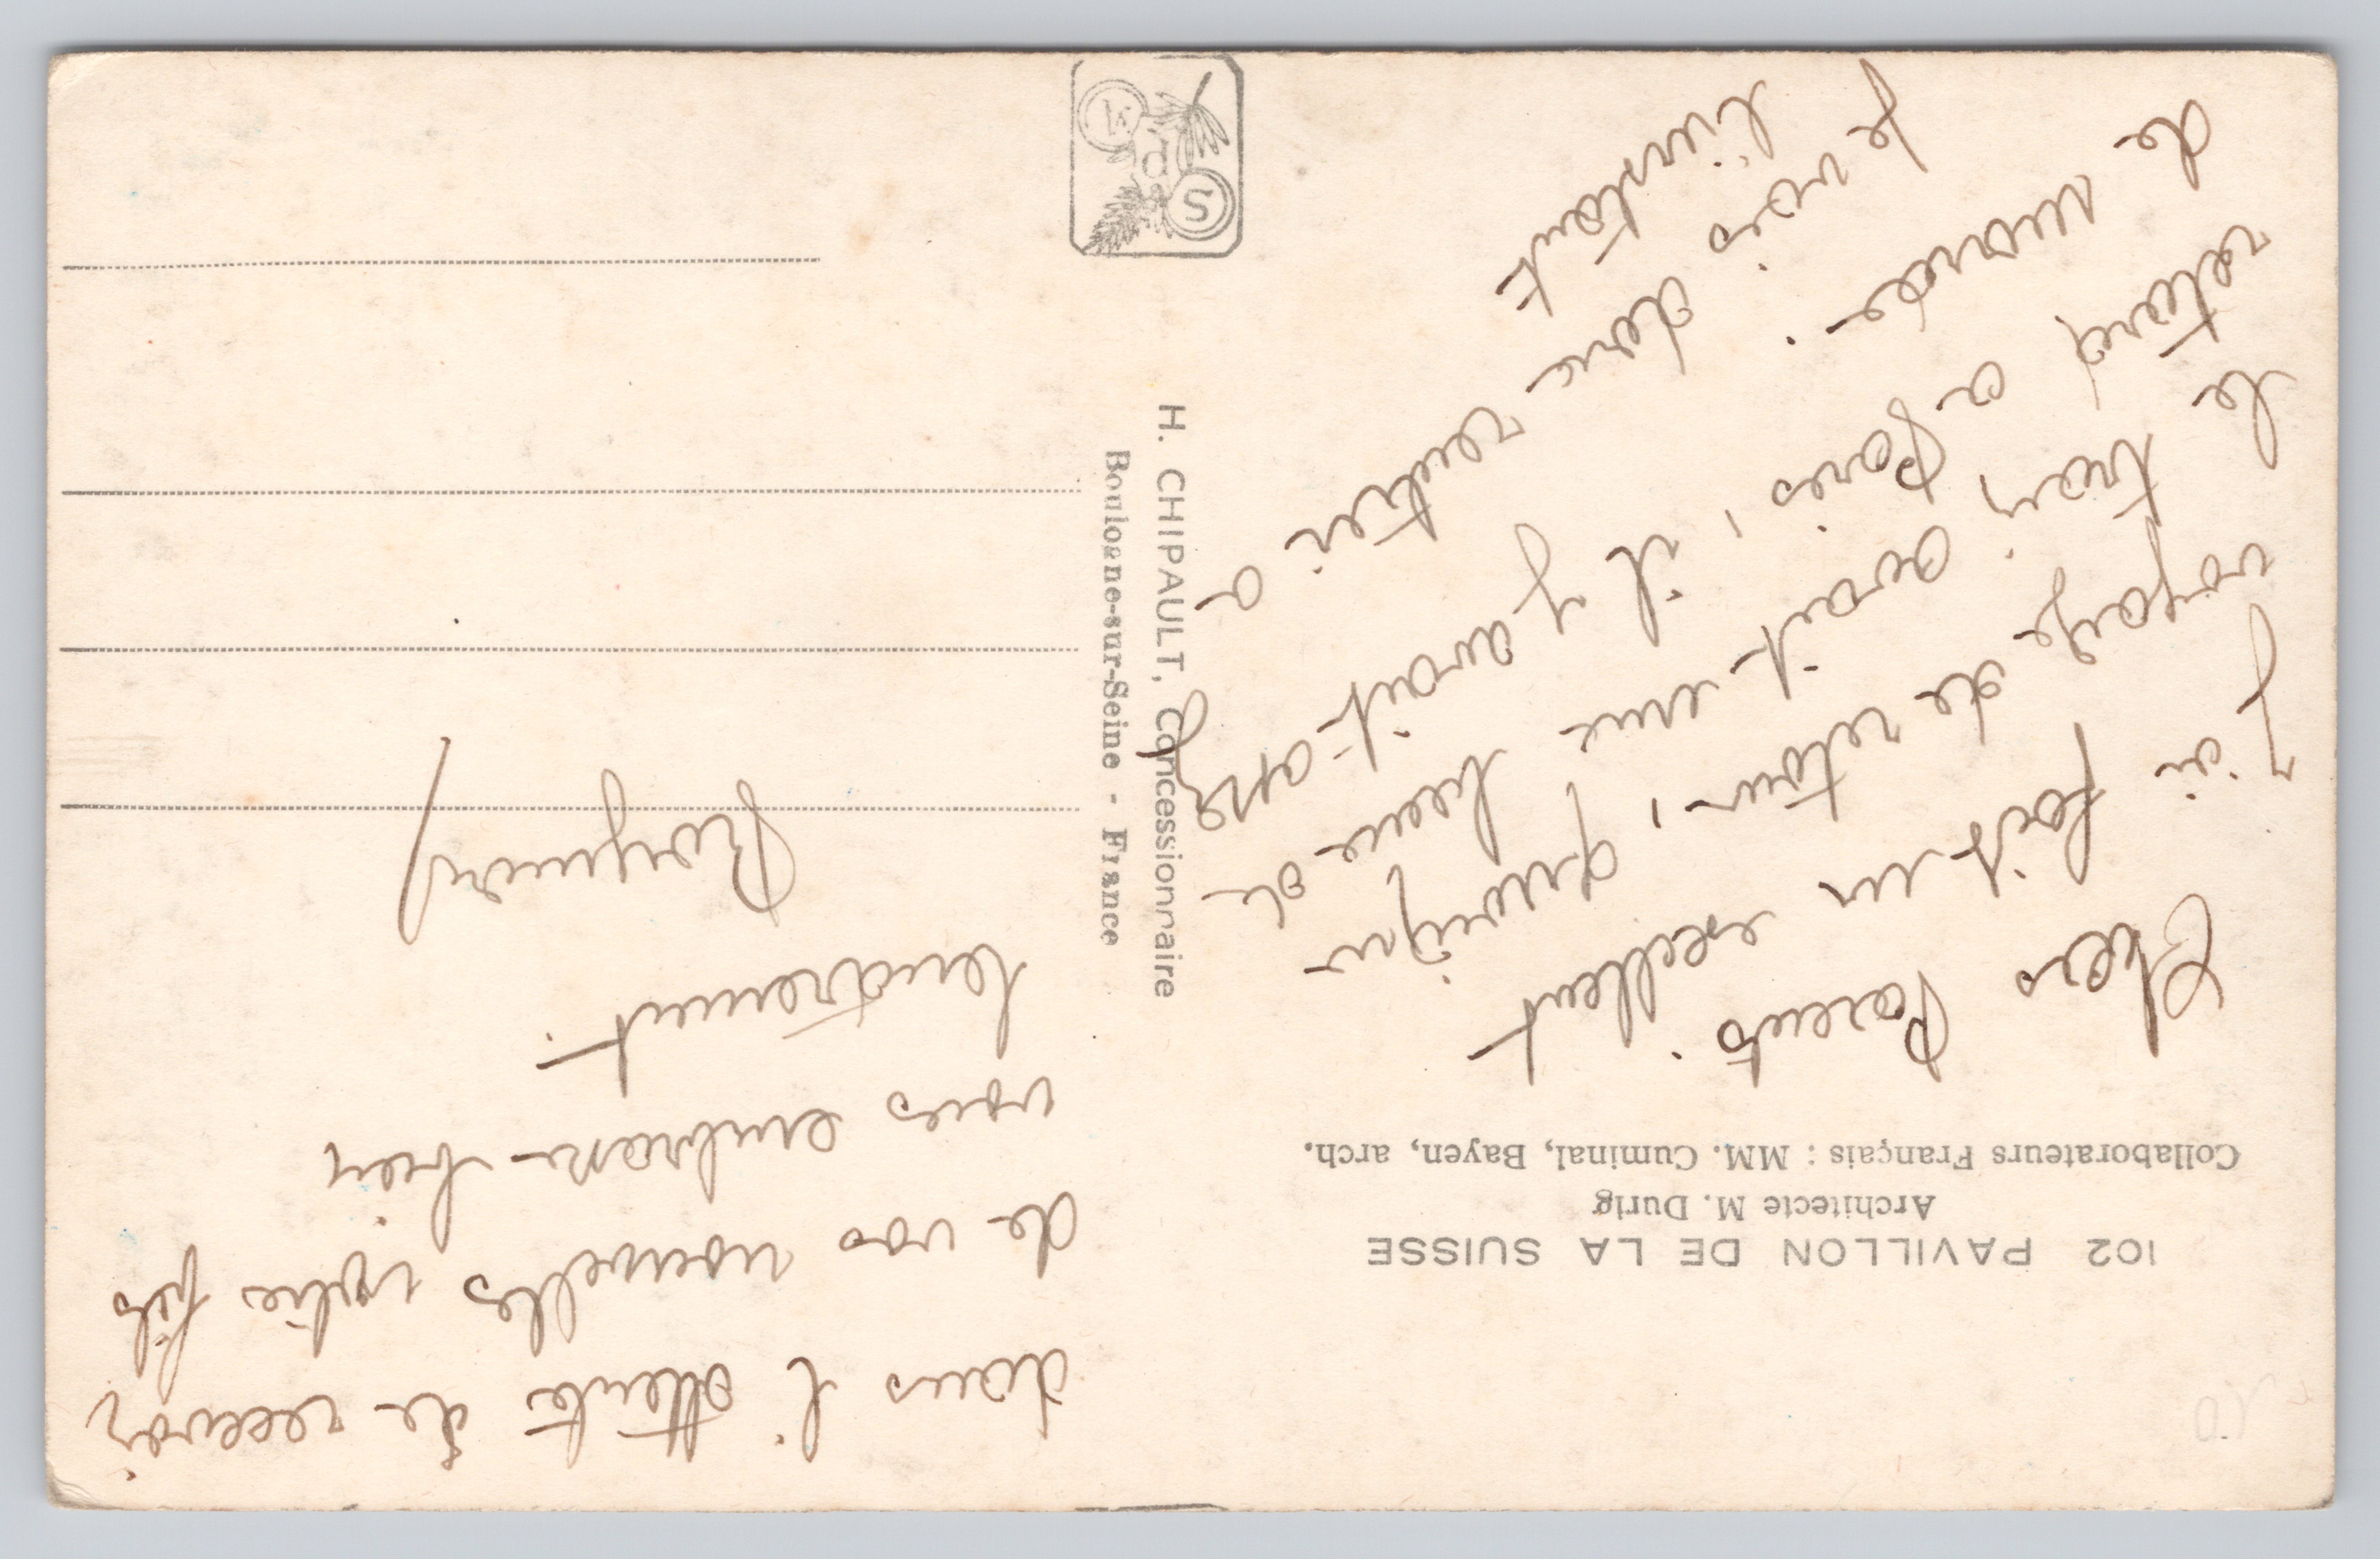 10
102 PAVILLON DE LA SUISSE
Architecte M. Durig
Collaborateurs Français : MM. Cuminal, Bayen, arch.
Chers Parents.
J'ai fait un exellent
voyage de retour, quoique
le train avait une heure de
retard a Paris, il y avait assez
de monde.
Je vais donc rentrer a
l'instant
H. CHIPAULT, Concessionnaire
Boulogne-sur-Seine - France
S
P
M
dans l'attente de recevoir
de vos nouvelles votre fils
vous embrasse bien
tendrement.
Raymond